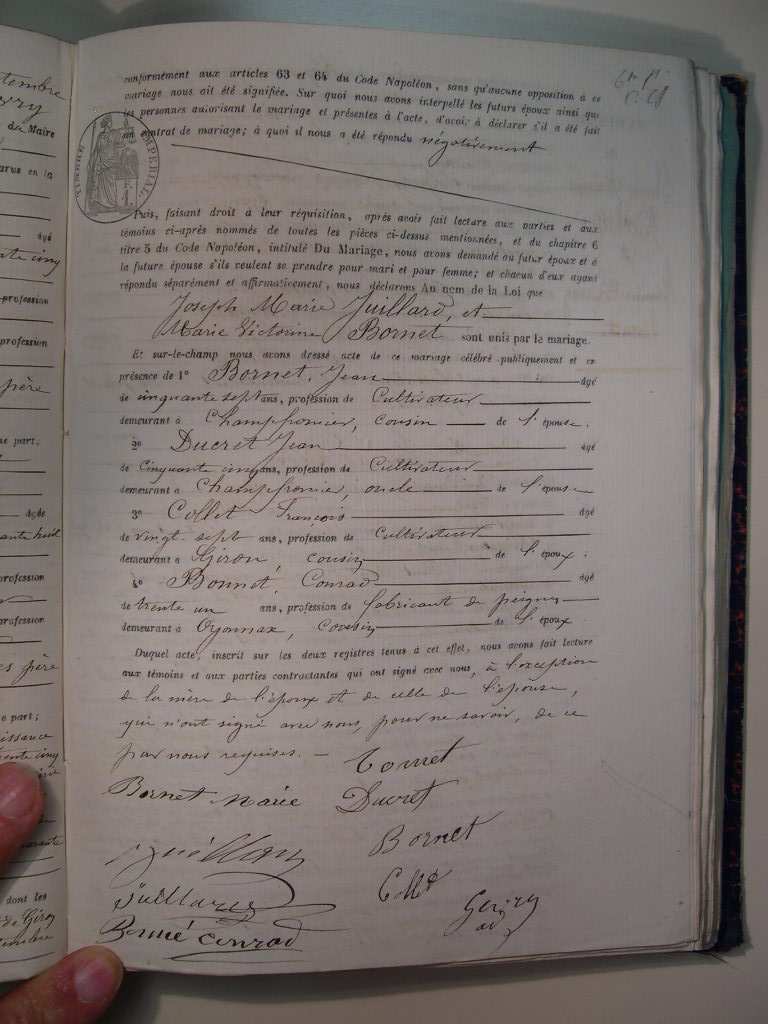 tembre
vry
du Maire
arus en la
dgé
te cinq
profession
profession
père
ne part,
dgde
ante huit
profession
profession
es père
e part ;
issance
ente cinq
dont les
TIMBRE IMPÉRIAL
F.
1.
conformément aux articles 63 et 64 du Code Napoléon, sans qu'aucune opposition à ce
mariage nous ait été signifiée. Sur quoi nous avons interpellé les futurs époux ainsi que
les personnes autorisant le mariage et présentes à l'acte, d'avoir à déclarer s'il a été fait
un contrat de mariage; à quoi il nous a été répondu négativement
Puis, faisant droit à leur réquisition, après avoir fait lecture aux parties et aux
témoins ci-après nommés de toutes les pièces ci-dessus mentionnées, et du chapitre 6
titre 5 du Code Napoléon, intitulé Du Mariage, nous avons demandé au futur époux et à
la future épouse s'ils veulent se prendre pour mari et pour femme; et chacun d'eux ayant
répondu séparément et affirmativement, nous déclarons Au nom de la Loi que
Joseph Marie Juillard, et
Marie Victorine Bornet sont unis par le mariage.
Et sur-le-champ nous avons dressé acte de ce mariage célébré publiquement et en
présence de 1° Bornet, Jean âgé
de cinquante sept ans, profession de Cultivateur
demeurant à Champfromier, cousin de l'épouse.
2° Ducret Jean âgé
de Cinquante cinq ans, profession de Cultivateur
demeurant à Champfromier, oncle de l'épouse
3° Collet François âgé
de vingt sept ans, profession de Cultivateur
demeurant à Giron cousin de l'époux ;
4° Bonnet, Conrad âgé
de trente un ans, profession de fabricant de peignes
demeurant à Oyonnax, cousin de l'époux
Duquel acte, inscrit sur les deux registres tenus à cet effet, nous avons fait lecture
aux témoins et aux parties contractantes qui ont signé avec nous, à l'exception
de la mère de l'époux et de celle de l'épouse,
qui n'ont signé avec nous, pour ne savoir, de ce
par nous requises. —
Bornet
Bornet marie Ducret
Bornet
Juillard
Bonné Conrad